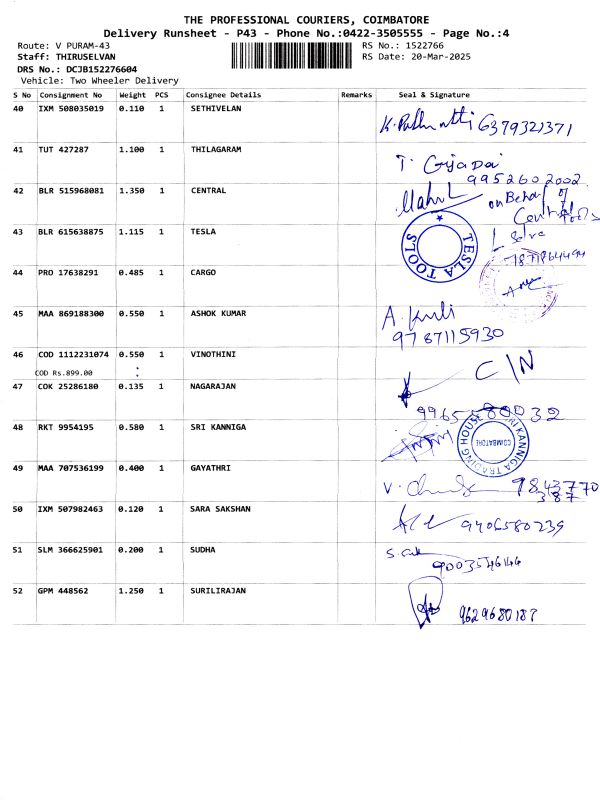 THE PROFESSIONAL COURIERS, COIMBATORE
Delivery Runsheet - P43 - Phone No.:0422-3505555 - Page No.:4
Route: V PURAM-43 RS No.: 1522766
Staff: THIRUSELVAN RS Date: 20-Mar-2025
DRS No.: DCJB152276604
Vehicle: Two Wheeler Delivery
S No Consignment No Weight PCS Consignee Details Remarks Seal & Signature
40 IXM 508035019 0.110 1 SETHIVELAN
6379321371
41 TUT 427287 1.100 1 THILAGARAM
9952602002
42 BLR 515968081 1.350 1 CENTRAL
on Behalf of
Central Tools
43 BLR 615638875 1.115 1 TESLA
TESLA TOOLS
44 PRO 17638291 0.485 1 CARGO
45 MAA 869188300 0.550 1 ASHOK KUMAR
9787115930
46 COD 1112231074 0.550 1 VINOTHINI
COD Rs.899.00 :
C/N
47 COK 25286180 0.135 1 NAGARAJAN
9965580032
48 RKT 9954195 0.580 1 SRI KANNIGA
SRI KANNIGA TRADING HOUSE
COIMBATORE
49 MAA 707536199 0.400 1 GAYATHRI
9843770
387
50 IXM 507982463 0.120 1 SARA SAKSHAN
9406580239
51 SLM 366625901 0.200 1 SUDHA
9003546146
52 GPM 448562 1.250 1 SURILIRAJAN
9629680187